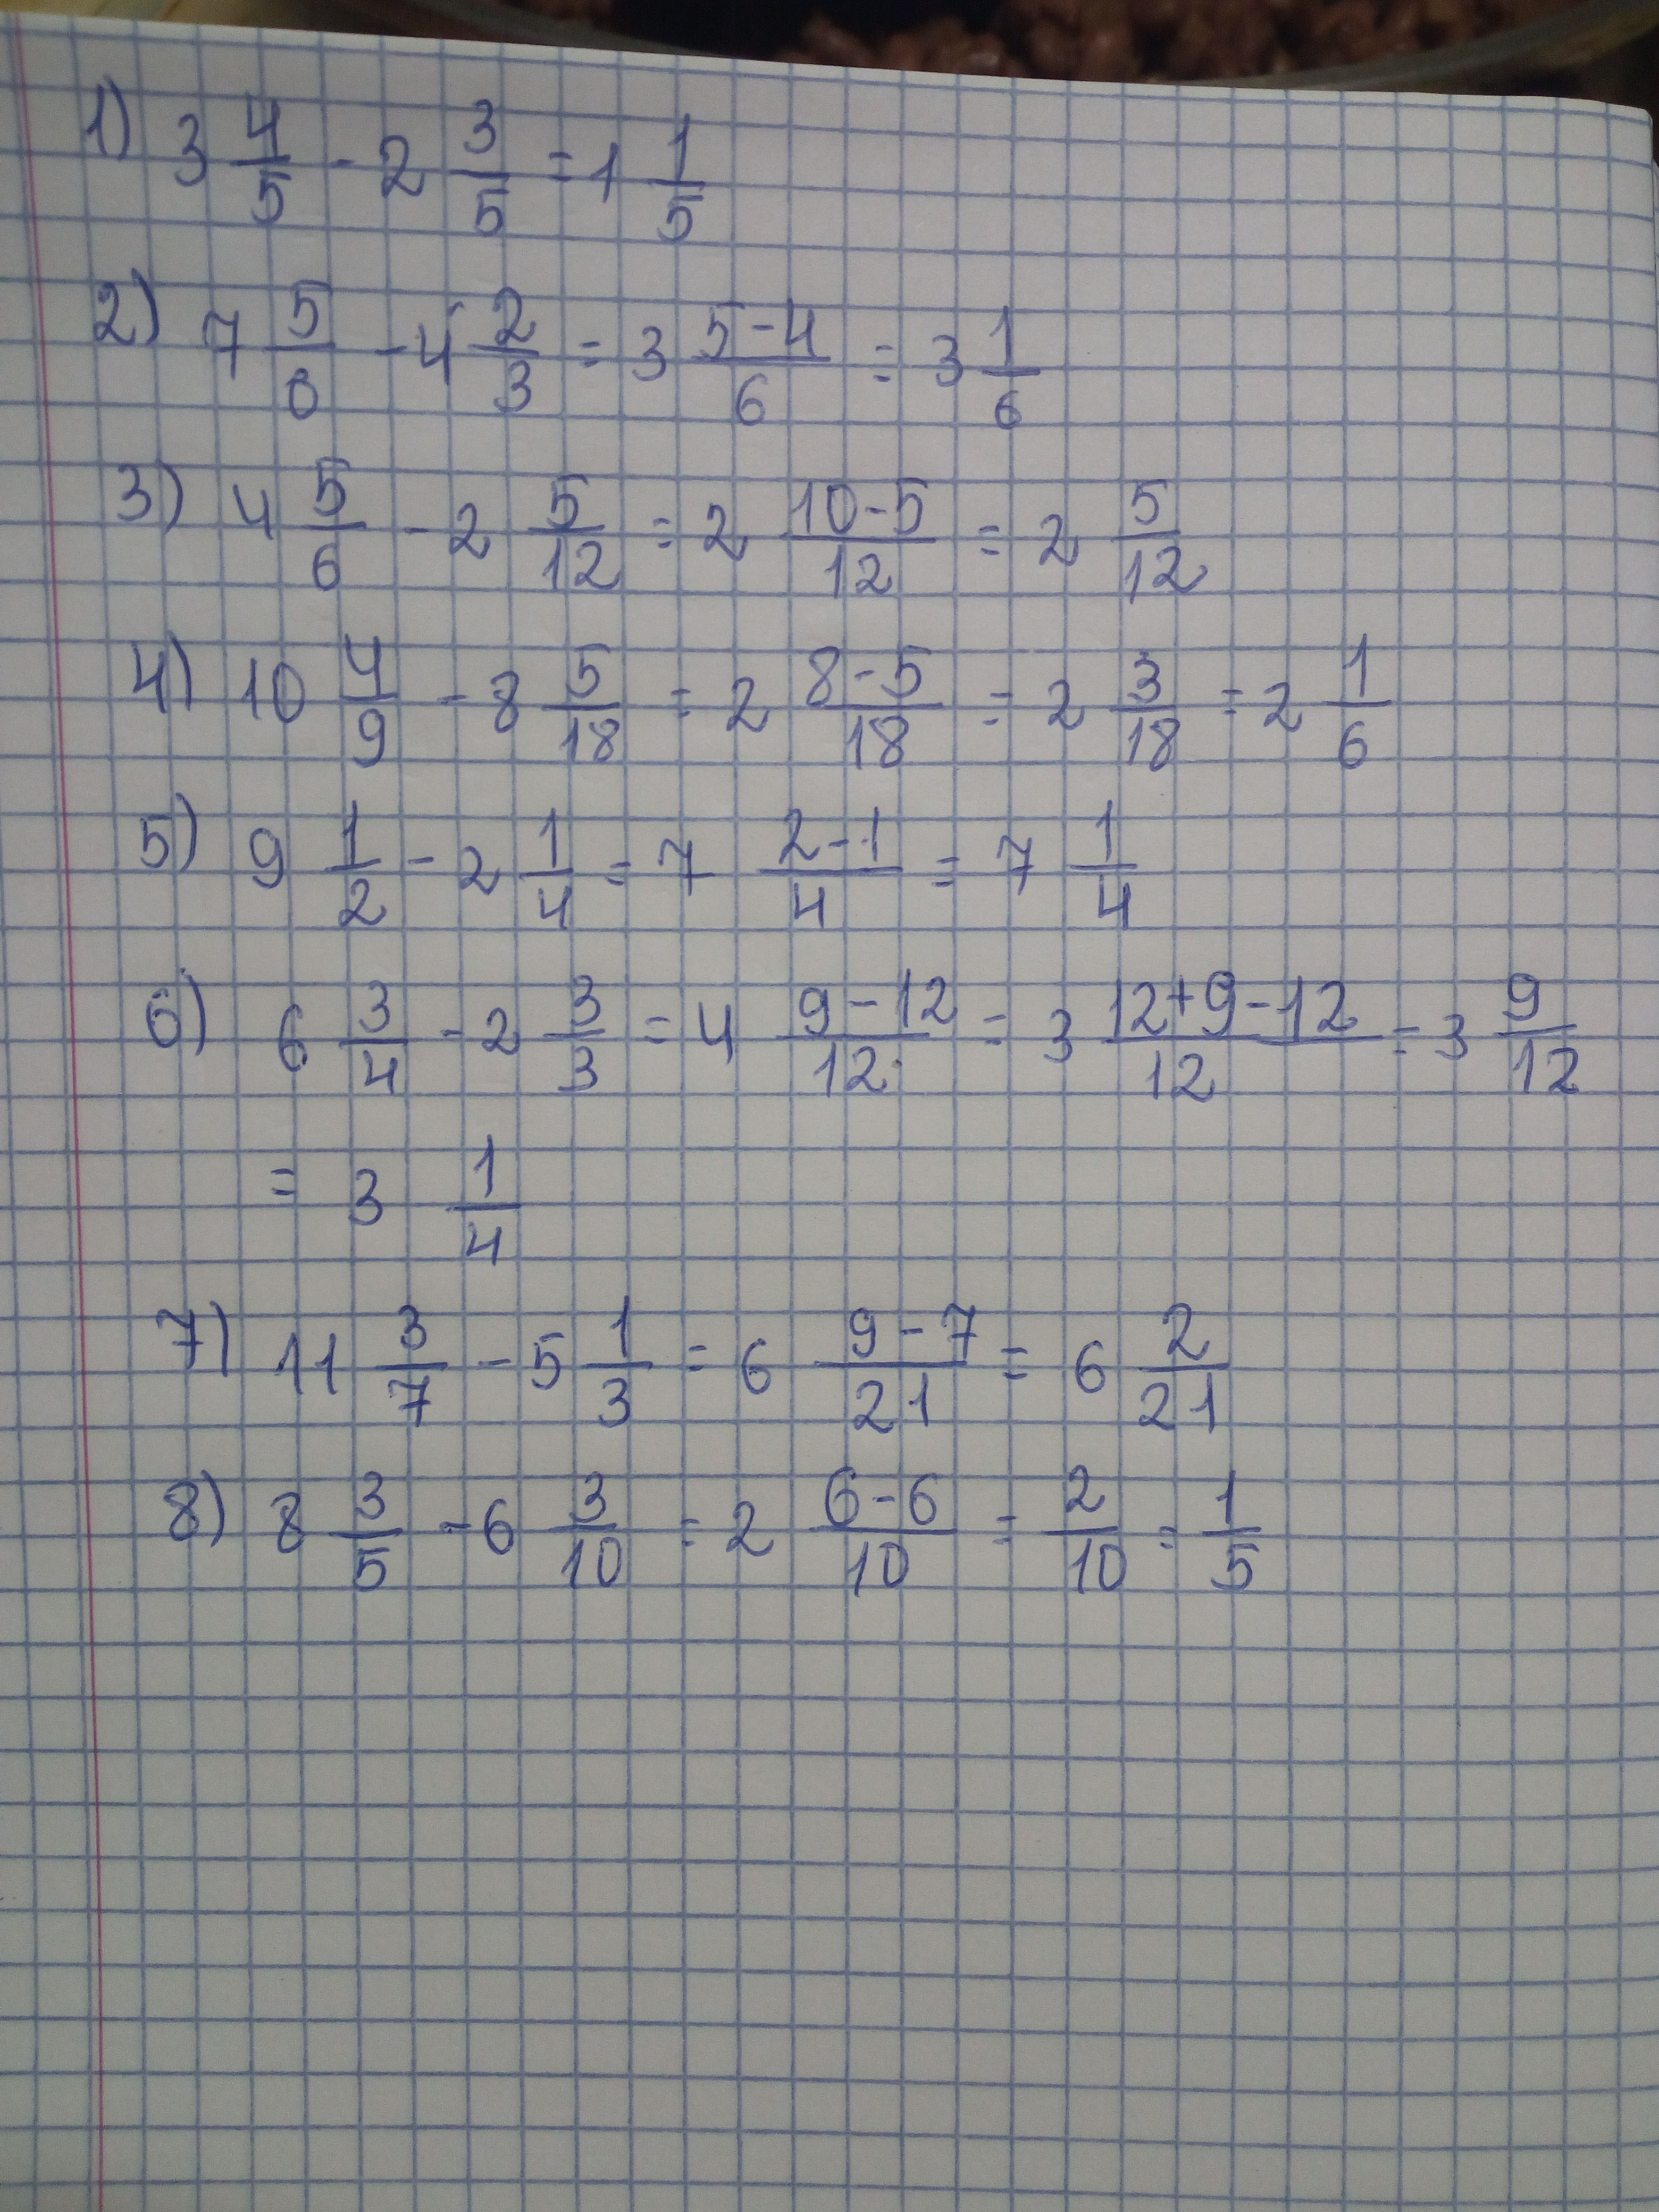 1) 3 4/5 - 2 3/5 = 1 1/5
2) 7 5/6 - 4 2/3 = 3 5-4/6 = 3 1/6
3) 4 5/6 - 2 5/12 = 2 10-5/12 = 2 5/12
4) 10 4/9 - 8 5/18 = 2 8-5/18 = 2 3/18 = 2 1/6
5) 9 1/2 - 2 1/4 = 7 2-1/4 = 7 1/4
6) 6 3/4 - 2 3/3 = 4 9-12/12 = 3 12+9-12/12 = 3 9/12
= 3 1/4
7) 11 3/7 - 5 1/3 = 6 9-7/21 = 6 2/21
8) 8 3/5 - 6 3/10 = 2 6-6/10 = 2/10 = 1/5